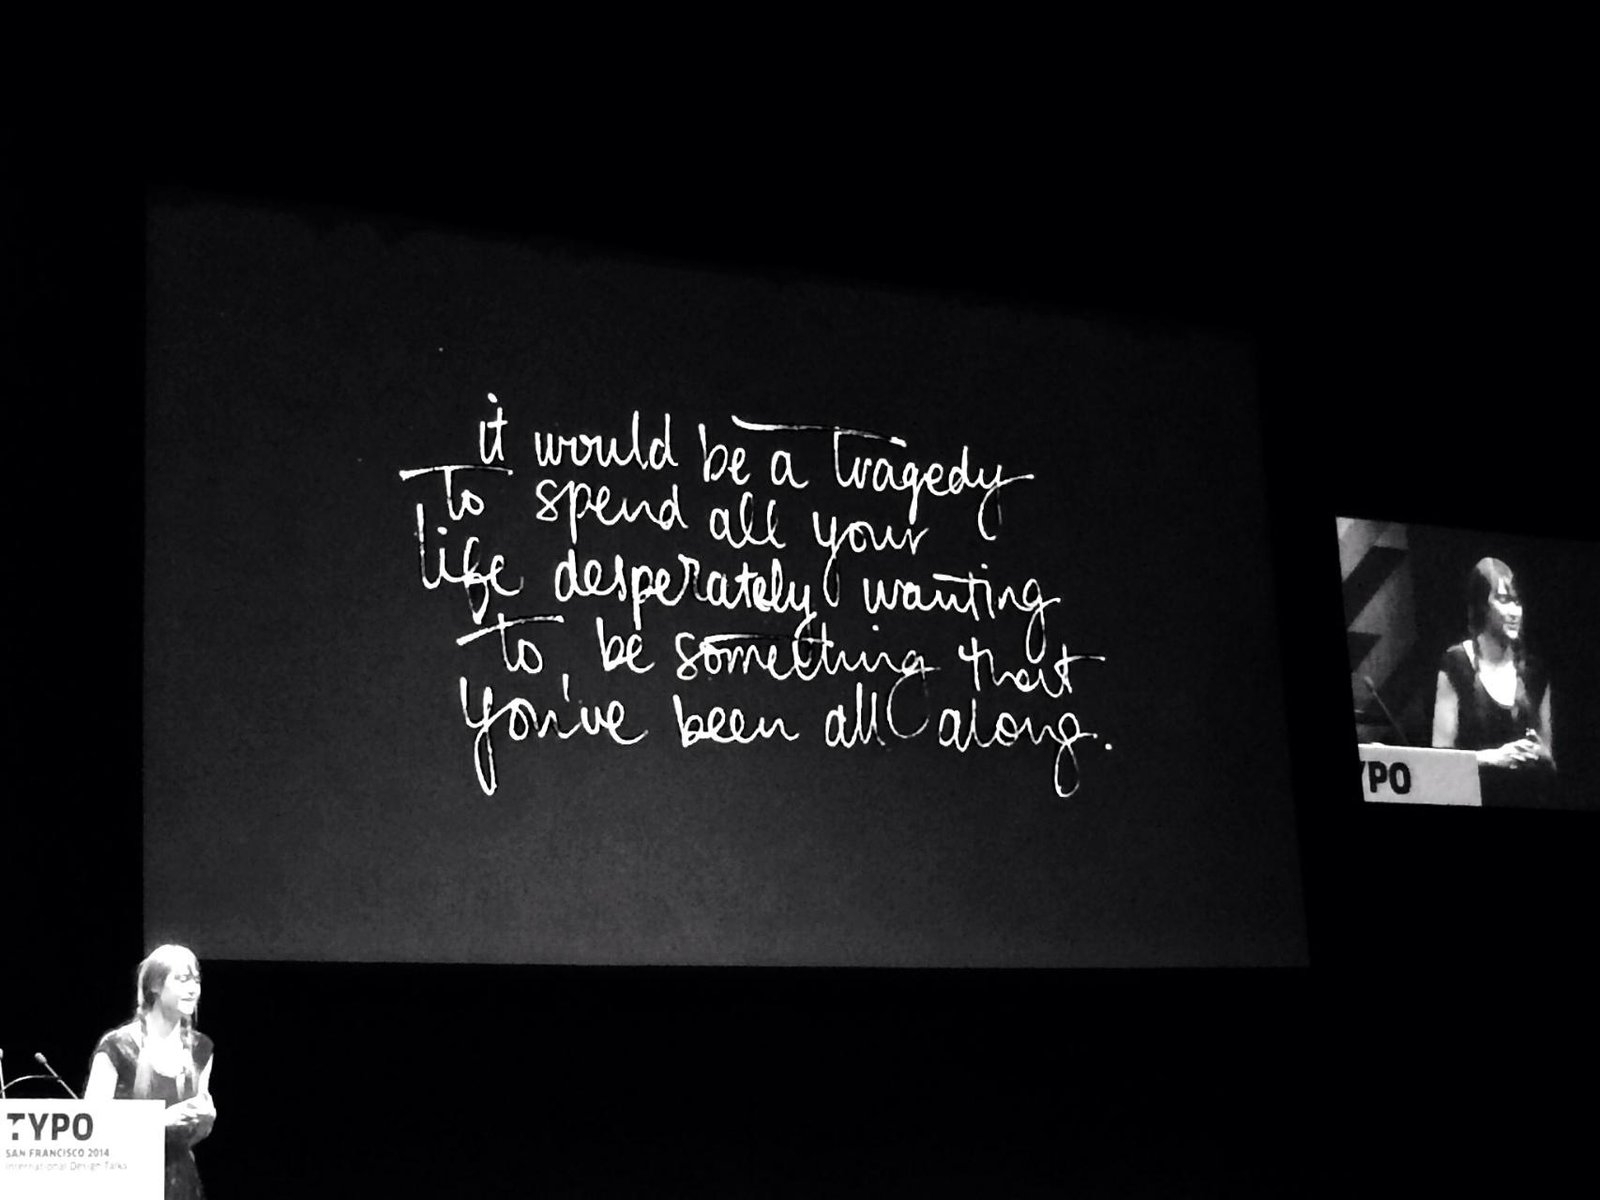 it would be a tragedy
to spend all your
life desperately wanting
to be something that
you've been all along.
YPO
TYPO
SAN FRANCISCO 2014
International Design Talks